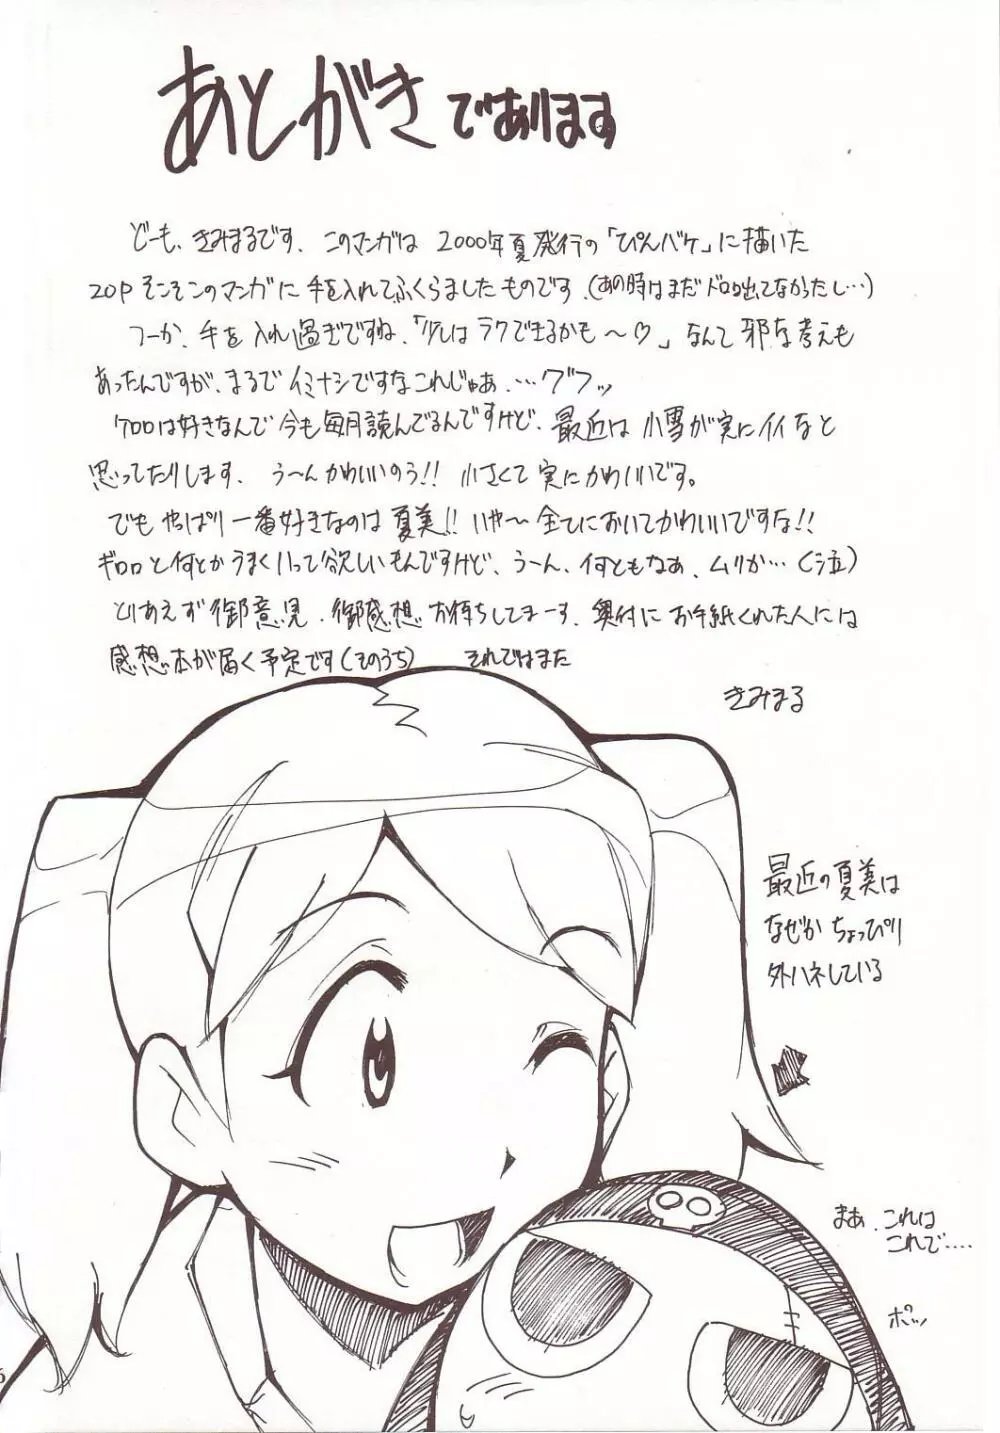 あとがきであります
どーも、きみまるです。このマンガは2000年夏発行の「ぴんバケ」に描いた
20Pそこそこのマンガに手を入れてふくらましたものです。(あの時はまだドロロ出てなかったし…)
つーか、手を入れ過ぎですね、「少しはラクできるかも〜♡」なんて邪な考えも
あったんですが、まるでイミナシですなこれじゃあ、…グフッ
ケロロは好きなんで今も毎月読んでるんですけど、最近は小雪が実にイイなと
思ってたりします、う〜んかわいいのう!!小さくて実にかわいいです。
でもやっぱり一番好きなのは夏美!!いや〜全てにおいてかわいいですな!!
ギロロと何とかうまくいって欲しいもんですけど、うーん、何ともなあ、ムリか…(泣)
とりあえず御意見、御感想お待ちしてまーす、奥付にお手紙くれた人には
感想本が届く予定です(そのうち) それではまた
きみまる
最近の夏美は
なぜかちょっぴり
外ハネしている
まあ、これは
これで‥‥
ポッ